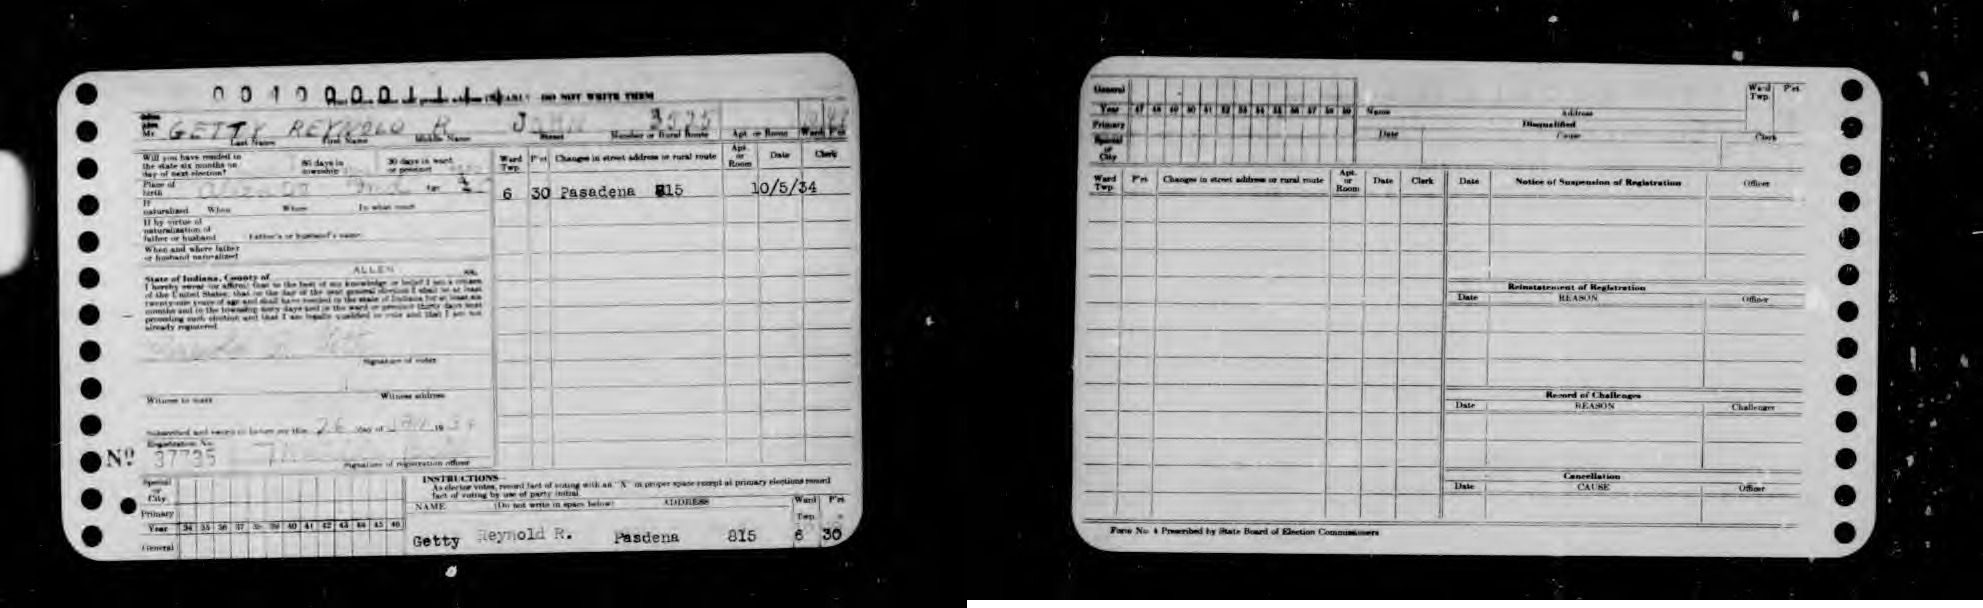 0 0 1 0 0 0 0 1 1 1 1 DO NOT WRITE THEM
Mr. GETTY REYNOLD R JOHN 3525
Last Name First Name Middle Name Street Number or Rural Route Apt. or Room Ward P'ct
Will you have resided in the state six months on day of next election? 60 days in township 30 days in ward or precinct
Place of birth Allen Co Ind
If naturalized When Where In what court
If by virtue of naturalization of father or husband Father's or husband's name
When and where father or husband naturalized
State of Indiana, County of ALLEN ss.
I hereby swear (or affirm) that to the best of my knowledge or belief I am a citizen
of the United States; that on the day of the next general election I shall be at least
twenty-one years of age and shall have resided in the state of Indiana for at least six
months and in the township sixty days and in the ward or precinct thirty days next
preceding such election and that I am legally qualified to vote and that I am not
already registered.
Signature of voter
Witness to mark Witness address
Subscribed and sworn to before me this 26 day of 19 34
Registration No.
Nº 37735
Signature of registration officer
Ward Twp. P'ct Changes in street address or rural route Apt. or Room Date Clerk
6 30 Pasadena 815 10/5/34
Special or City
Primary
Year 34 35 36 37 38 39 40 41 42 43 44 45 46
General
INSTRUCTIONS—
As elector votes, record fact of voting with an "X" in proper space except at primary elections record
fact of voting by use of party initial.
NAME (Do not write in space below) ADDRESS Ward Twp. P'ct
Getty Reynold R. Pasdena 815 6 30
General
Year 47 48 49 50 51 52 53 54 55 56 57 58 59
Primary
Special or City
Name Address Ward Twp. P'ct
Disqualified
Date Cause Clerk
Ward Twp. P'ct Changes in street address or rural route Apt. or Room Date Clerk
Date Notice of Suspension of Registration Officer
Reinstatement of Registration
Date REASON Officer
Record of Challenges
Date REASON Challenger
Cancellation
Date CAUSE Officer
Form No. 4 Prescribed by State Board of Election Commissioners